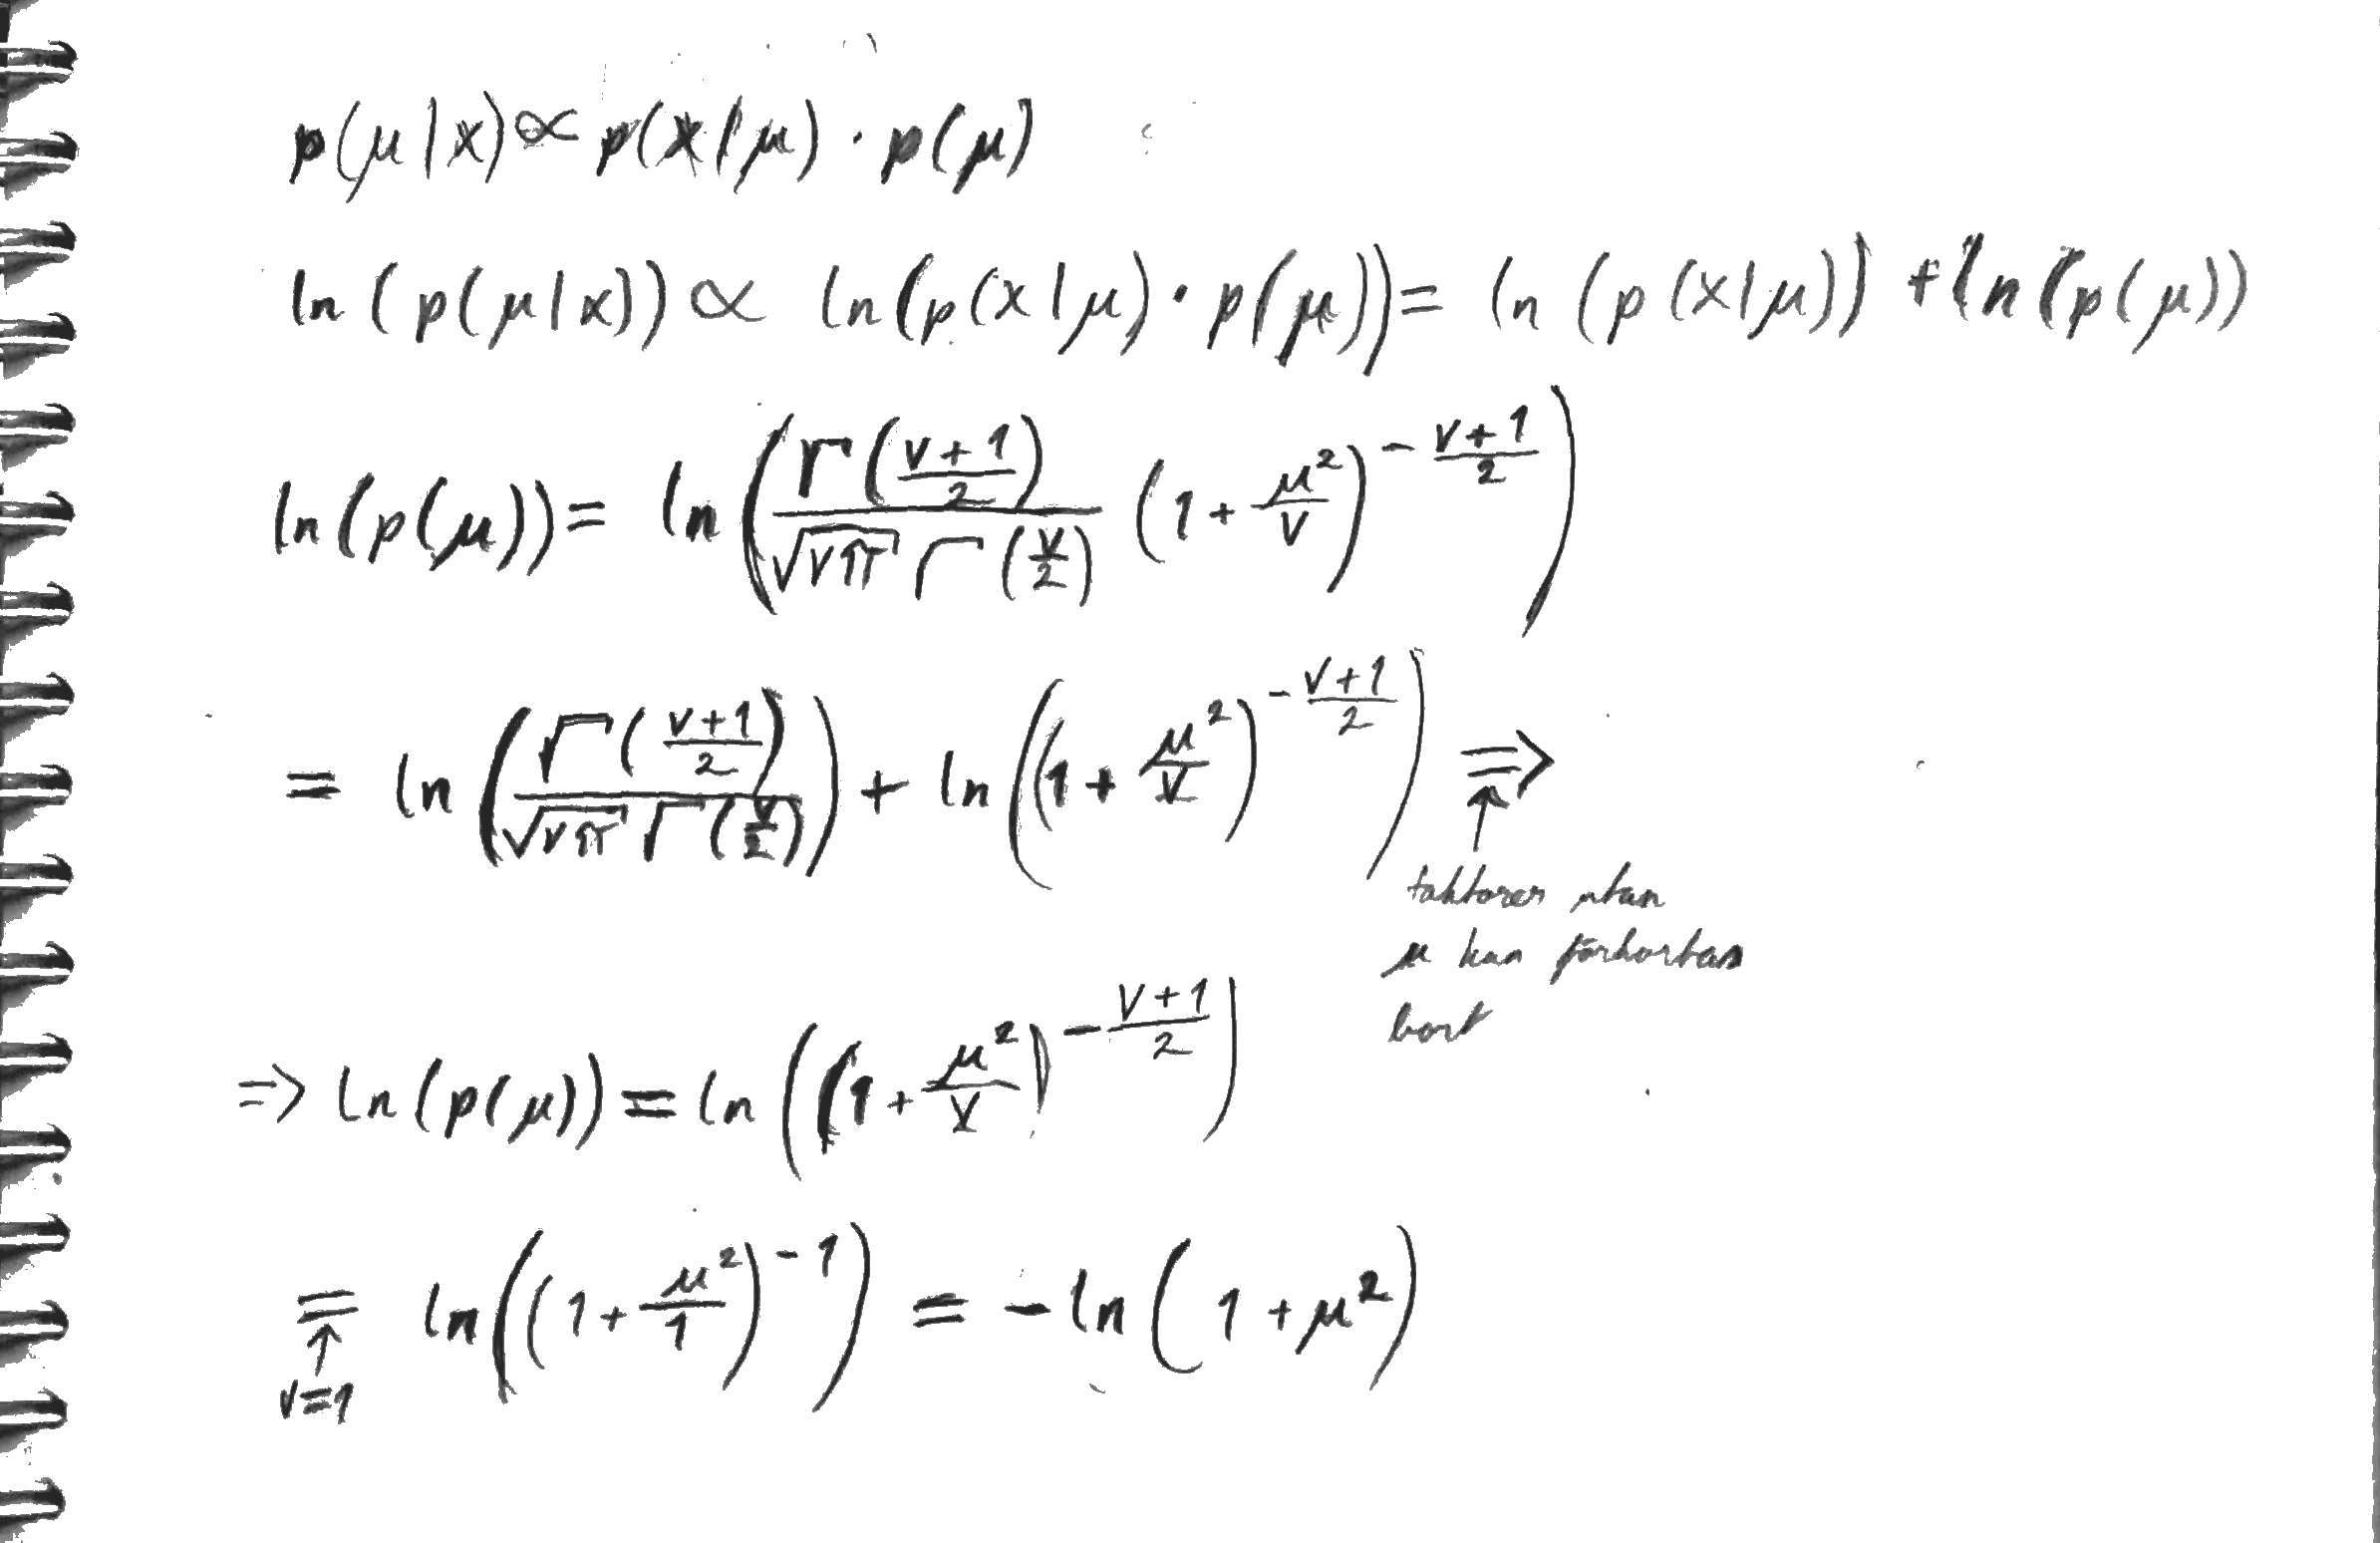 p(μ|x) ∝ p(x|μ) · p(μ)
ln(p(μ|x)) ∝ ln(p(x|μ) · p(μ)) = ln(p(x|μ)) + ln(p(μ))
ln(p(μ)) = ln(Γ((ν+1)/2) / (√(νπ) Γ(ν/2)) (1 + μ²/ν)^(-(ν+1)/2))
= ln(Γ((ν+1)/2) / (√(νπ) Γ(ν/2))) + ln((1 + μ²/ν)^(-(ν+1)/2)) ⇒
↑
faktorer utan
μ kan förkortas
bort
⇒ ln(p(μ)) = ln((1 + μ²/ν)^(-(ν+1)/2))
= ln((1 + μ²/1)^(-1)) = -ln(1 + μ²)
↑
ν=1